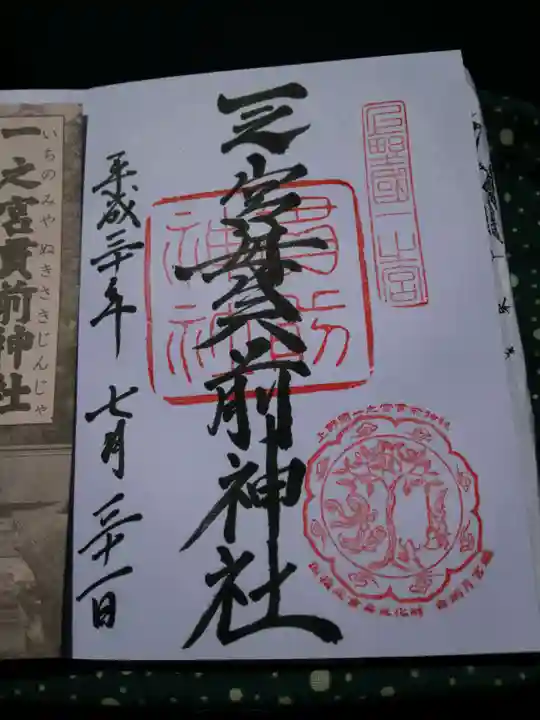 上野國一之宮
一之宮貫前神社
貫前神社
平成三十年 七月三十一日
上野國一之宮貫前神社
一之宮貫前神社
いちのみや ぬきさきじんじゃ